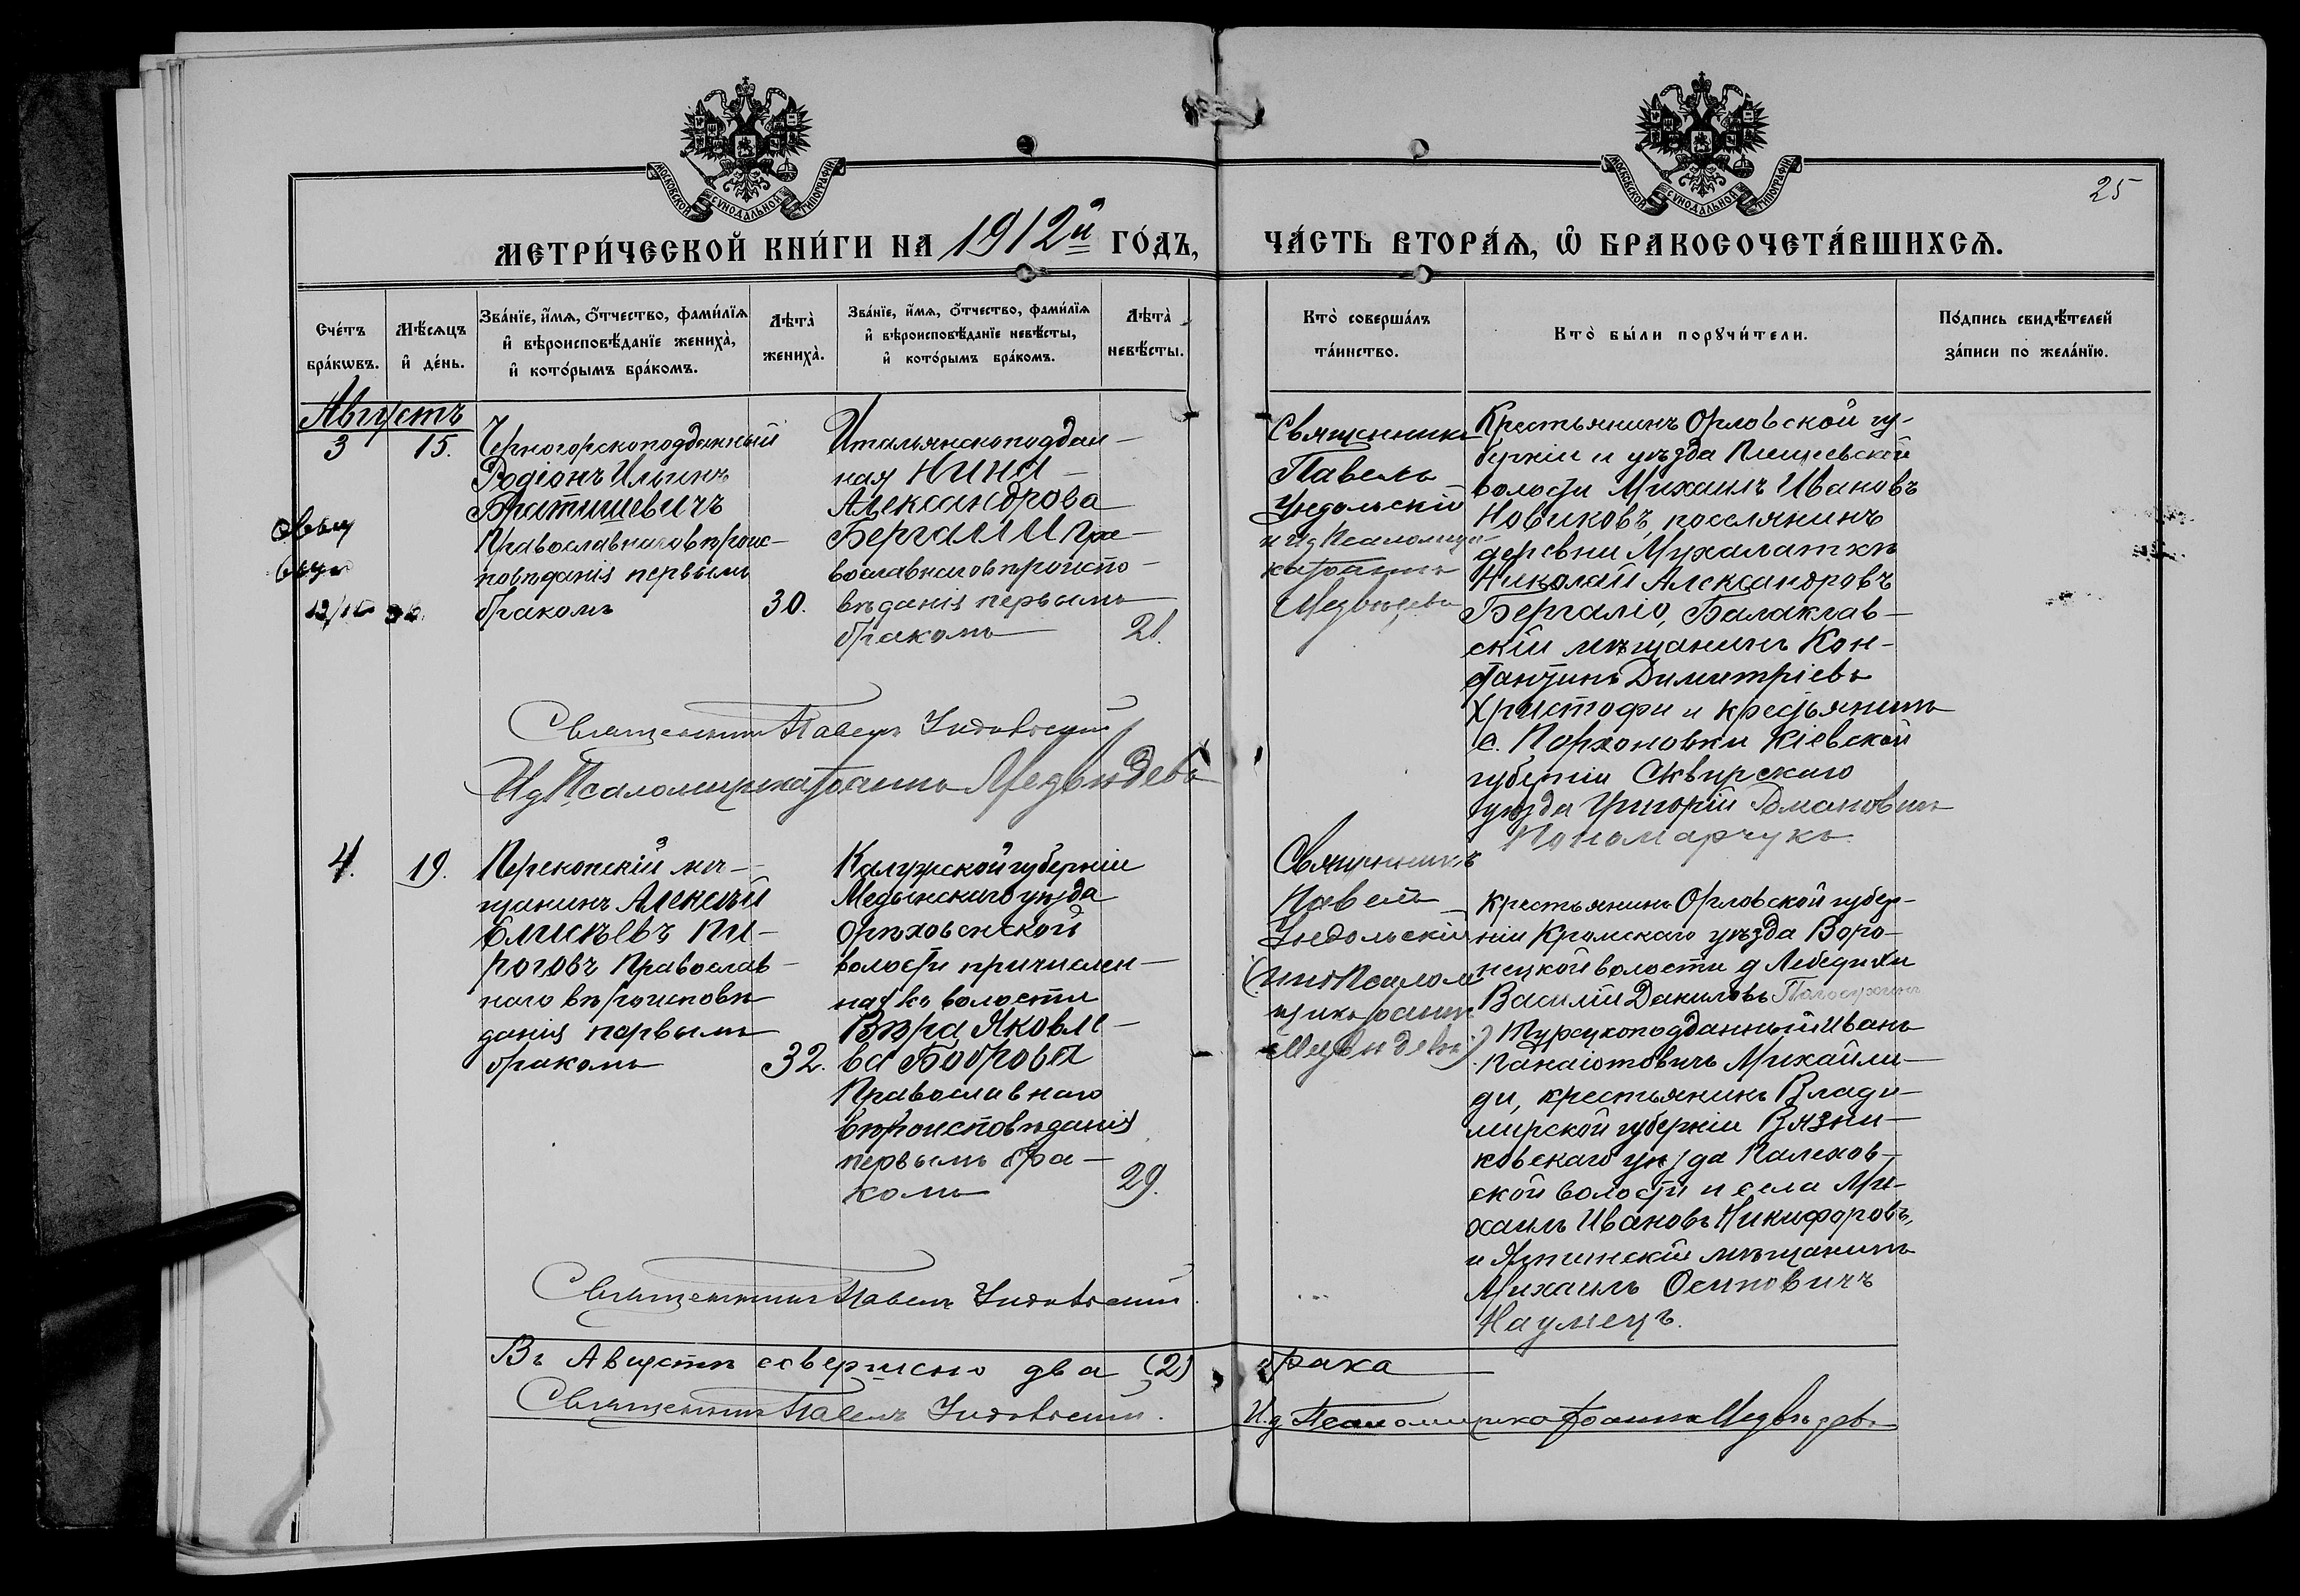 МОСКОВСКОЙ СѴНОДАЛЬНОЙ ТИПОГРАФІИ
МОСКОВСКОЙ СѴНОДАЛЬНОЙ ТИПОГРАФІИ
25
МЕТРИ́ЧЕСКОЙ КНИ́ГИ НА 1912й ГО́ДЪ,
ЧА́СТЬ ВТОРА́Ѧ, Ѡ҆ БРАКОСОЧЕТА́ВШИХСѦ.
Сче́тъ
бра́кѡвъ.
Мѣ́сѧцъ
и҆ де́нь.
Зва́нїе, и҆́мѧ, ѻ҆́тчество, фами́лїѧ
и҆ вѣроисповѣ́данїе жениха̀,
и҆ кото́рымъ бра́комъ.
Лѣта̀
жениха̀.
Зва́нїе, и҆́мѧ, ѻ҆́тчество, фами́лїѧ
и҆ вѣроисповѣ́данїе невѣ́сты,
и҆ кото́рымъ бра́комъ.
Лѣта̀
невѣ́сты.
Кто̀ соверша́лъ
та́инство.
Кто̀ бы́ли порꙋчи́тели.
По́дпись свидѣ́телей
за́писи по жела́нїю.
Августъ
3
15.
Черногорскоподданный
Родіонъ Ильинъ
Братишевичъ
Православнаго вѣроис-
повѣданія первымъ
бракомъ
30.
Итальянскоподдан-
ная Нина
Александрова
Бергамли пра-
вославнаго вѣроиспо-
вѣданія первымъ
бракомъ
21.
Священникъ
Павелъ
Ундольскій
и ид Псаломщи-
ка Іоаннъ
Медвѣдевъ
Крестьянинъ Орловской гу-
берніи и уѣзда Плещеевской
волости Михаилъ Ивановъ
Новиковъ, поселянинъ
деревни Мухалатки
Николай Александровъ
Бергаліо, Балаклав-
скій мѣщанинъ Кон-
стантинъ Димитріевъ
Христофи и крестьянинъ
с. Пархоновки Кіевской
губерніи Сквирскаго
уѣзда Григорій Романовичъ
Пономарчукъ.
Священникъ Павелъ Ундольскій
Ид Псаломщика Іоаннъ Медвѣдевъ
4.
19.
Перекопскій мѣ-
щанинъ Алексѣй
Елисѣевъ Пи-
роговъ Православ-
наго вѣроисповѣ
данія первымъ
бракомъ
32.
Калужской губерніи
Медынскаго уѣзда
Орѣховенской
волости причислен-
ная къ волости
Вѣра Яковле-
ва Боброва
Православнаго
вѣроисповѣданія
первымъ бра-
комъ
29.
Священникъ
Павелъ
Ундольскій
Псалом
щика Іоаннъ
Медвѣдевъ)
крестьянинъ Орловской губер-
ніи Кромскаго уѣзда Воро-
нецкой волости д Лебедихи
Василій Даниловъ
Турецкоподданный Иванъ
Панаіотовичъ Михайли-
ди, крестьянинъ Влади-
мирской губерніи Вязни-
ковскаго уѣзда Палехов-
ской волости и села Ми-
хаилъ Ивановъ Никифоровъ,
и Ялтинскій мѣщанинъ
Михаилъ Осиповичъ
Наумецъ.
Священникъ Павелъ Ундольскій.
Въ Августѣ совершено два (2) брака
Священникъ Павелъ Ундольскій.
И.д Псаломщика Іоаннъ Медвѣдевъ